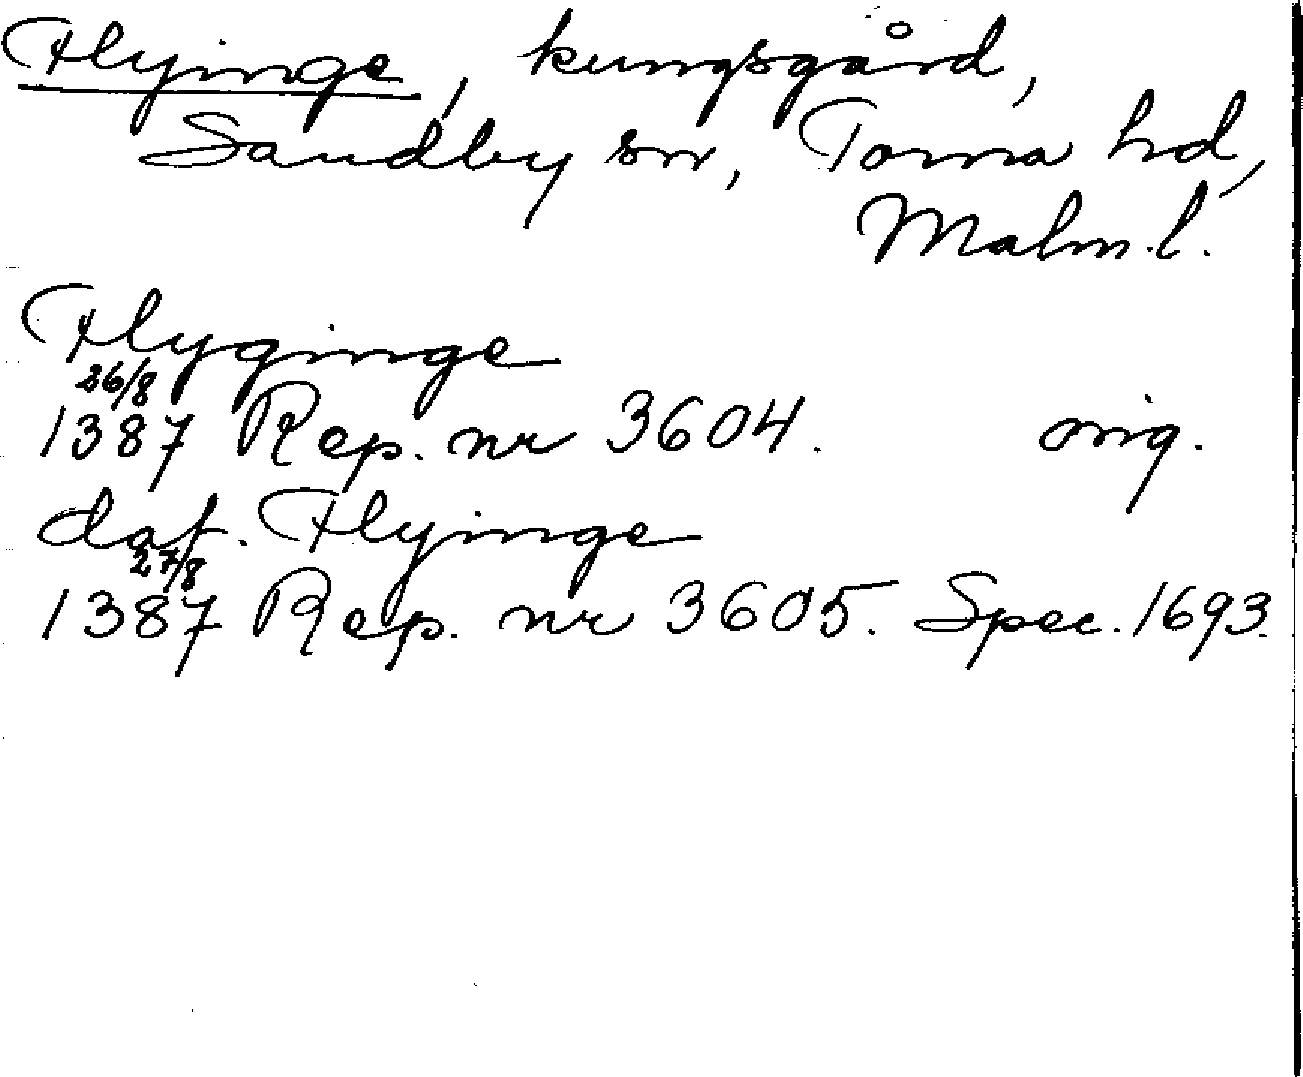 Flyinge, kungsgård,
Sandby sn, Torna hd,
Malm.l.
Flyginge
26/8
1387 Rep. nr 3604. orig.
dat. Flyinge
27/8
1387 Rep. nr 3605. Spec. 1693.